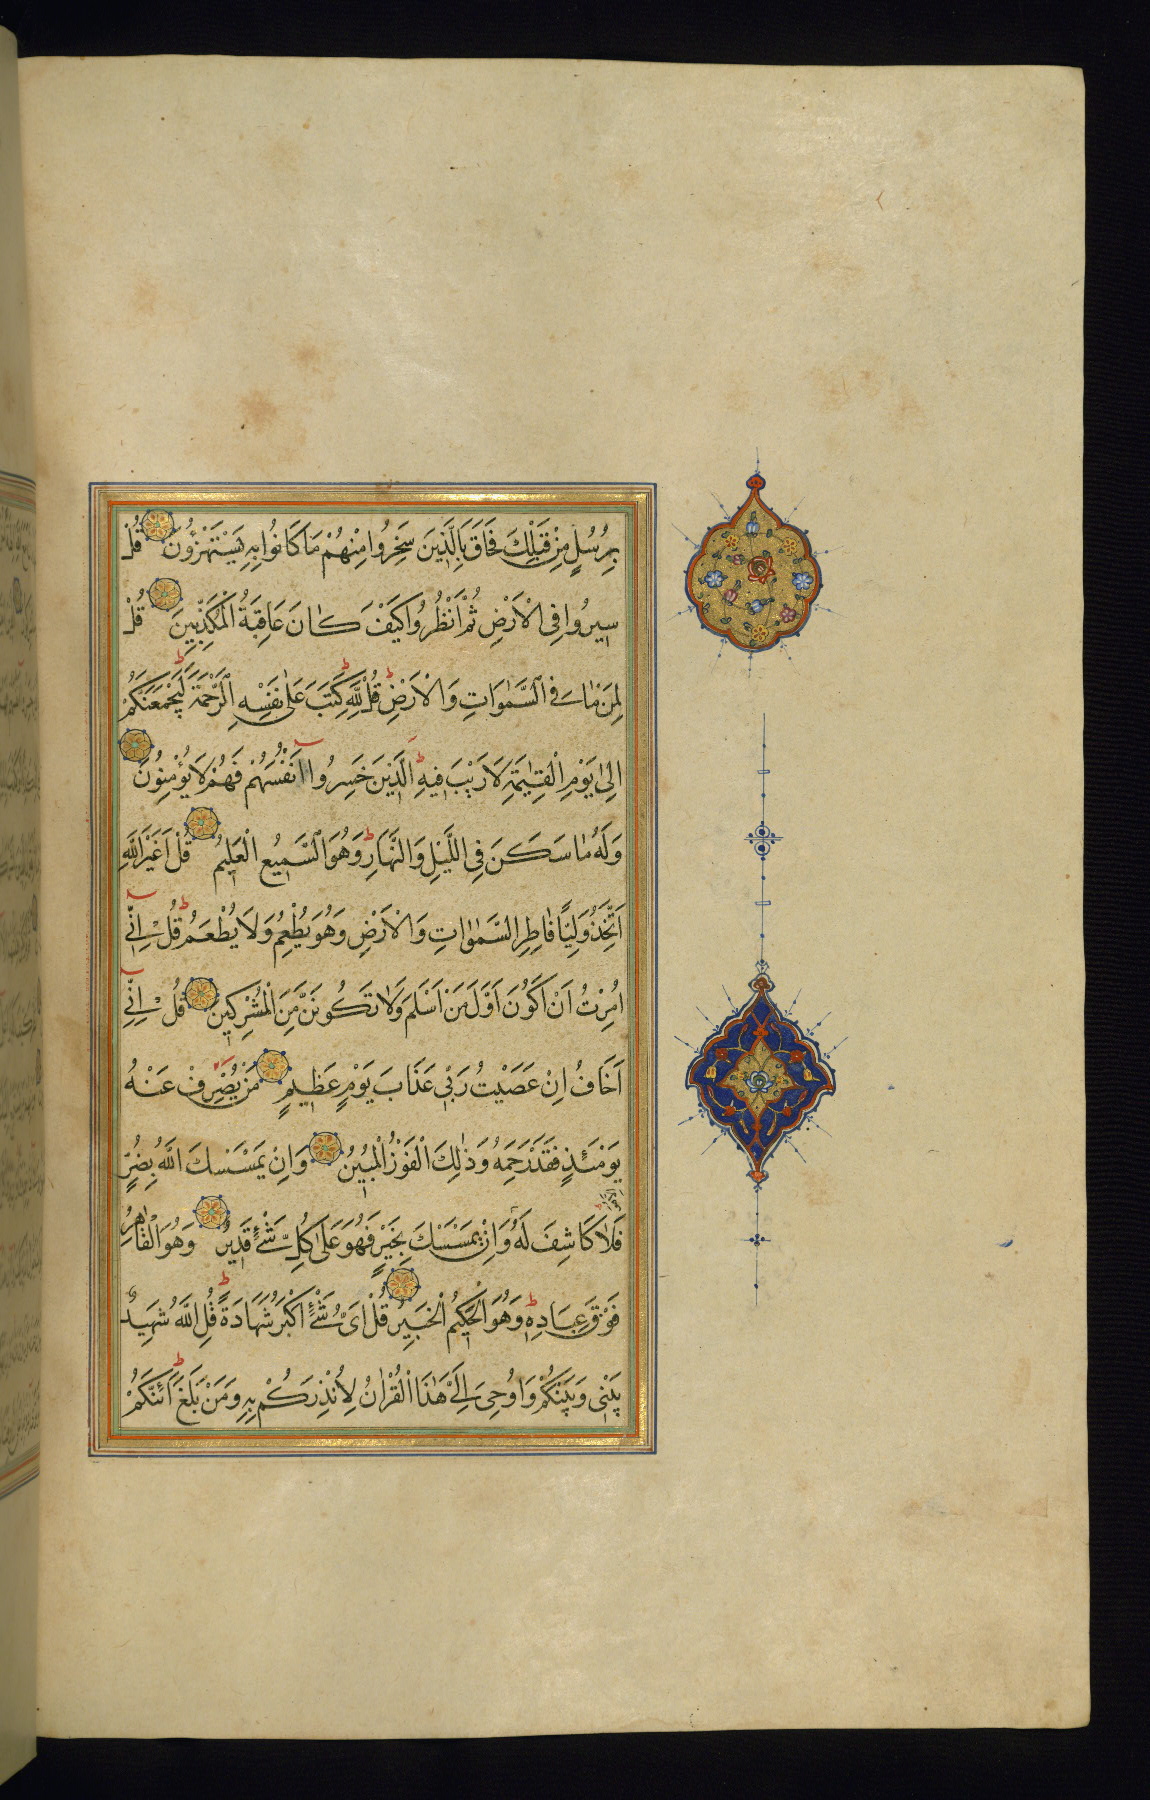 بِرُسُلٍ مِنْ قَبْلِكَ فَحَاقَ بِالَّذِينَ سَخِرُوا مِنْهُمْ مَا كَانُوا بِهِ يَسْتَهْزِؤُنَ قُلْ
سِيرُوا فِى الْاَرْضِ ثُمَّ انْظُرُوا كَيْفَ كَانَ عَاقِبَةُ الْمُكَذِّبِينَ قُلْ
لِمَنْ مَا فِى السَّمٰوَاتِ وَالْاَرْضِ قُلْ لِلّٰهِ كَتَبَ عَلٰى نَفْسِهِ الرَّحْمَةَ لَيَجْمَعَنَّكُمْ
اِلٰى يَوْمِ الْقِيٰمَةِ لَا رَيْبَ فِيهِ الَّذِينَ خَسِرُوا اَنْفُسَهُمْ فَهُمْ لَا يُؤْمِنُونَ
وَلَهُ مَا سَكَنَ فِى اللَّيْلِ وَالنَّهَارِ وَهُوَ السَّمِيعُ الْعَلِيمُ قُلْ اَغَيْرَ اللّٰهِ
اَتَّخِذُ وَلِيًّا فَاطِرِ السَّمٰوَاتِ وَالْاَرْضِ وَهُوَ يُطْعِمُ وَلَا يُطْعَمُ قُلْ اِنِّى
اُمِرْتُ اَنْ اَكُونَ اَوَّلَ مَنْ اَسْلَمَ وَلَا تَكُونَنَّ مِنَ الْمُشْرِكِينَ قُلْ اِنِّى
اَخَافُ اِنْ عَصَيْتُ رَبِّى عَذَابَ يَوْمٍ عَظِيمٍ مَنْ يُصْرَفْ عَنْهُ
يَوْمَئِذٍ فَقَدْ رَحِمَهُ وَذٰلِكَ الْفَوْزُ الْمُبِينُ وَاِنْ يَمْسَسْكَ اللّٰهُ بِضُرٍّ
فَلَا كَاشِفَ لَهُ وَاِنْ يَمْسَسْكَ بِخَيْرٍ فَهُوَ عَلٰى كُلِّ شَىْءٍ قَدِيرٌ وَهُوَ الْقَاهِرُ
فَوْقَ عِبَادِهِ وَهُوَ الْحَكِيمُ الْخَبِيرُ قُلْ اَىُّ شَىْءٍ اَكْبَرُ شَهَادَةً قُلِ اللّٰهُ شَهِيدٌ
بَيْنِى وَبَيْنَكُمْ وَاُوحِىَ اِلَىَّ هٰذَا الْقُرْاٰنُ لِاُنْذِرَكُمْ بِهِ وَمَنْ بَلَغَ اَئِنَّكُمْ